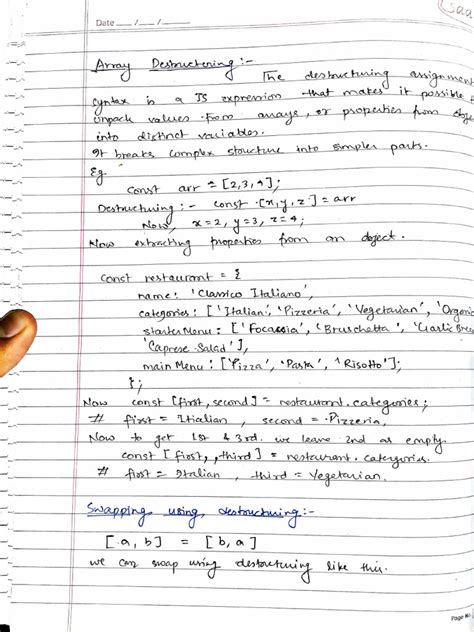 Date __/__/__
Array Destructuring :-
The destructuring assignment
syntax is a JS expression that makes it possible
unpack values from arrays, or properties from
into distinct variables.
It breaks complex structure into simpler parts.
Eg
const arr = [2,3,4];
Destructuring :- const [x,y,z] = arr
Now, x=2, y=3, z=4;
Now extracting properties from an object.
const restaurant = {
name: 'Classico Italiano',
categories: ['Italian', 'Pizzeria', 'Vegetarian', 'Organic
starterMenu: ['Focassia', 'Bruschetta', 'Garlic Brea
'Caprese Salad'],
main Menu: ['Pizza', 'Pasta', 'Risotto'];
};
Now const [first, second] = restaurant.categories;
# first = Italian, second = Pizzeria.
Now to get 1st & 3rd. we leave 2nd as empty.
const [first, , third] = restaurant.categories.
# first = Italian, third = Vegetarian.
Swapping using destructuring :-
[a, b] = [b, a]
we can swap using destructuring like this.
Page No